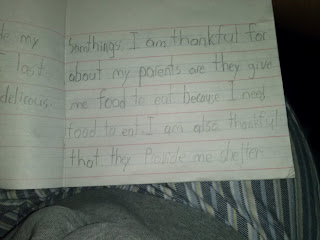 de my
last
delicous.
Somethings I am thankful for
about my parents are they give
me food to eat because I need
food to eat. I am also thankful
that thy Provide me shelter